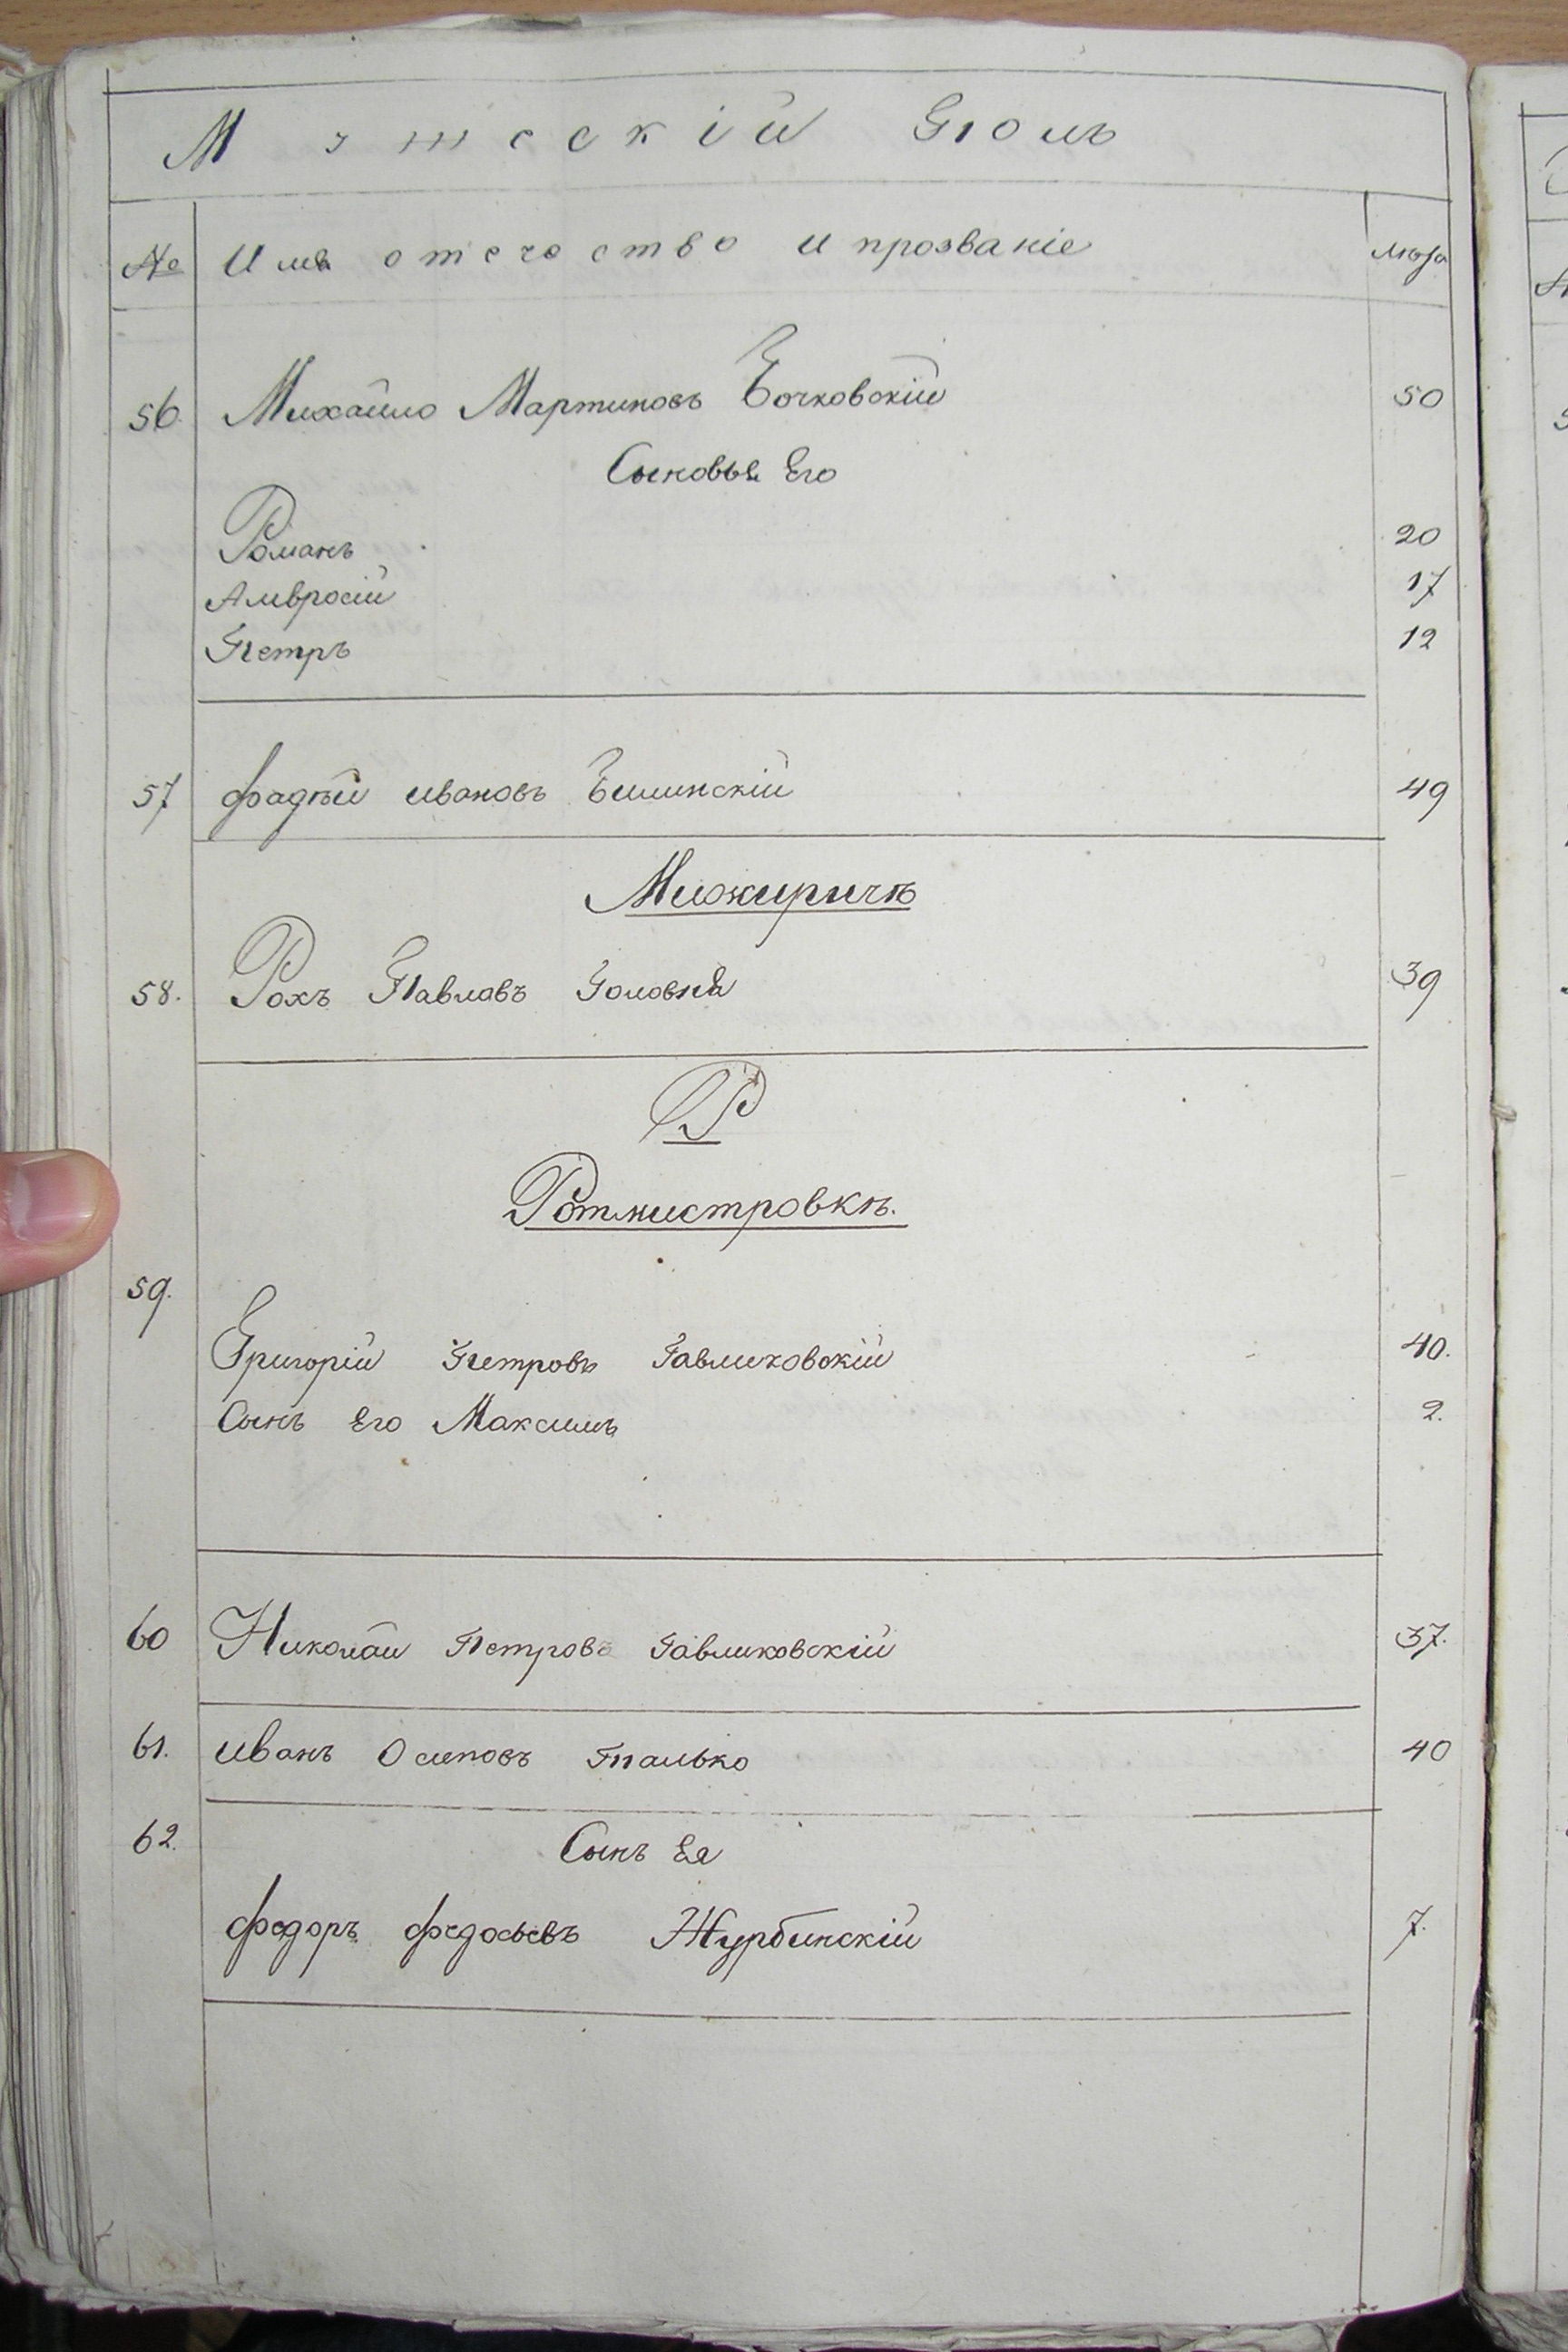 Мужескій Полъ
№ Имя отечество и прозваніе лѣта
56. Михайло Мартиновъ Бочковскій 50
Сыновья Его
Романъ 20
Амвросій 17
Петръ 12
57 Фадѣй Ивановъ Билинскій 49
Мижиричѣ
58. Рохъ Павловъ Головня 39
Р
Ротмистровкѣ.
59.
Григорій Петровъ Гавликовскій 40.
Сынъ Его Максимъ 2.
60 Николай Петровъ Гавликовскій 37.
61. Иванъ Осиповъ Палько 40
62. Сынъ Ея
Федоръ Федосьевъ Журбинскій 7.